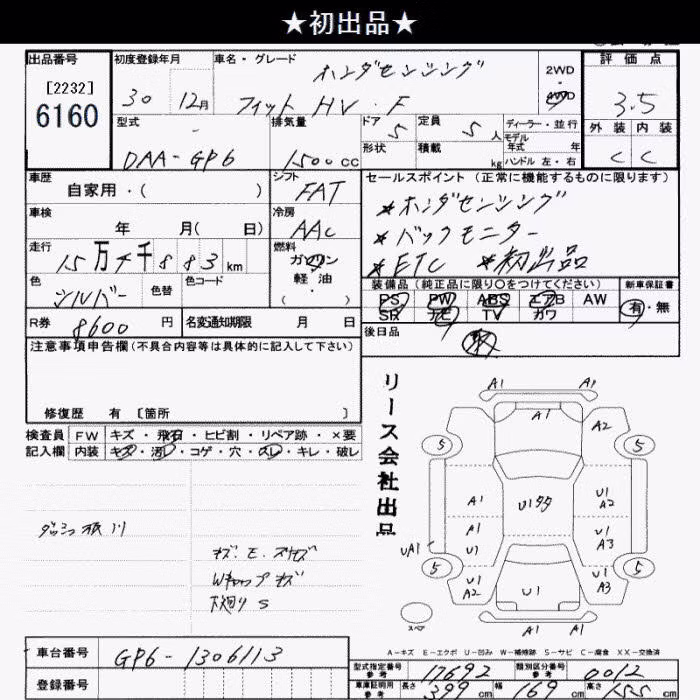 ★初出品★
出品番号 初度登録年月 車名・グレード 評価点
[2232]
6160
30 12月
ホンダセンシング
フィット HV・F
2WD
4WD
3.5
型式 排気量 ドア 5 定員 5人 ディーラー・並行
モデル年式 年
外装 内装
DAA-GP6 1500cc 形状 積載 kg ハンドル 左・右 C C
車歴 自家用・( ) シフト FAT
セールスポイント (正常に機能するものに限ります)
車検 年 月( 日) 冷房 AAC
*ホンダセンシング
*バックモニター
*ETC *初出品
走行 15万4千883km 燃料 ガソリン
軽油・( )
色 シルバー 色替 色コード
装備品 (純正品に限り〇をつけてください) 新車保証書
PS PW ABS エアB AW 有・無
SR ナビ TV カワ
R券 8600円 名変通知期限 月 日
後日品
注意事項申告欄(不具合内容等は具体的に記入して下さい)
修復歴 有 [箇所 ]
検査員記入欄 FW キズ・飛石・ヒビ割・リペア跡・×要
内装 キズ・汚レ・コゲ・穴・スレ・キレ・破レ
リース会社出品
A1 A1
A1
A2
5 5
A1 U1タタ U1 A2
A1 U1 A3
UA1 U1
5 5
U1 A2 U1 A3
A1 A1
スペア
キズ・E・スリキズ
Wキャップキズ
下廻りS
A-キズ E-エクボ U-凹み W-補修跡 S-サビ C-腐食 XX-交換済
車台番号 GP6-1306113
登録番号
型式指定番号 参考 17692 類別区分番号 参考 0012
車庫証明用 参考 長さ 399cm 幅 169cm 高さ 155cm